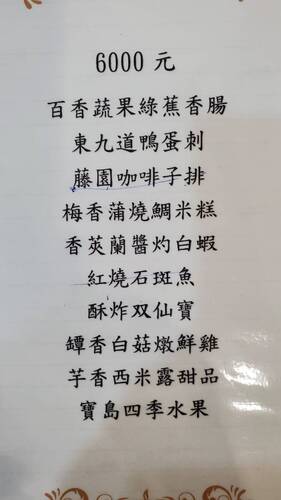 6000 元
百香蔬果綠蕉香腸
東九道鴨蛋刺
藤園咖啡子排
梅香蒲燒鯛米糕
香莢蘭醬灼白蝦
紅燒石斑魚
酥炸双仙寶
罈香白菇燉鮮雞
芋香西米露甜品
寶島四季水果